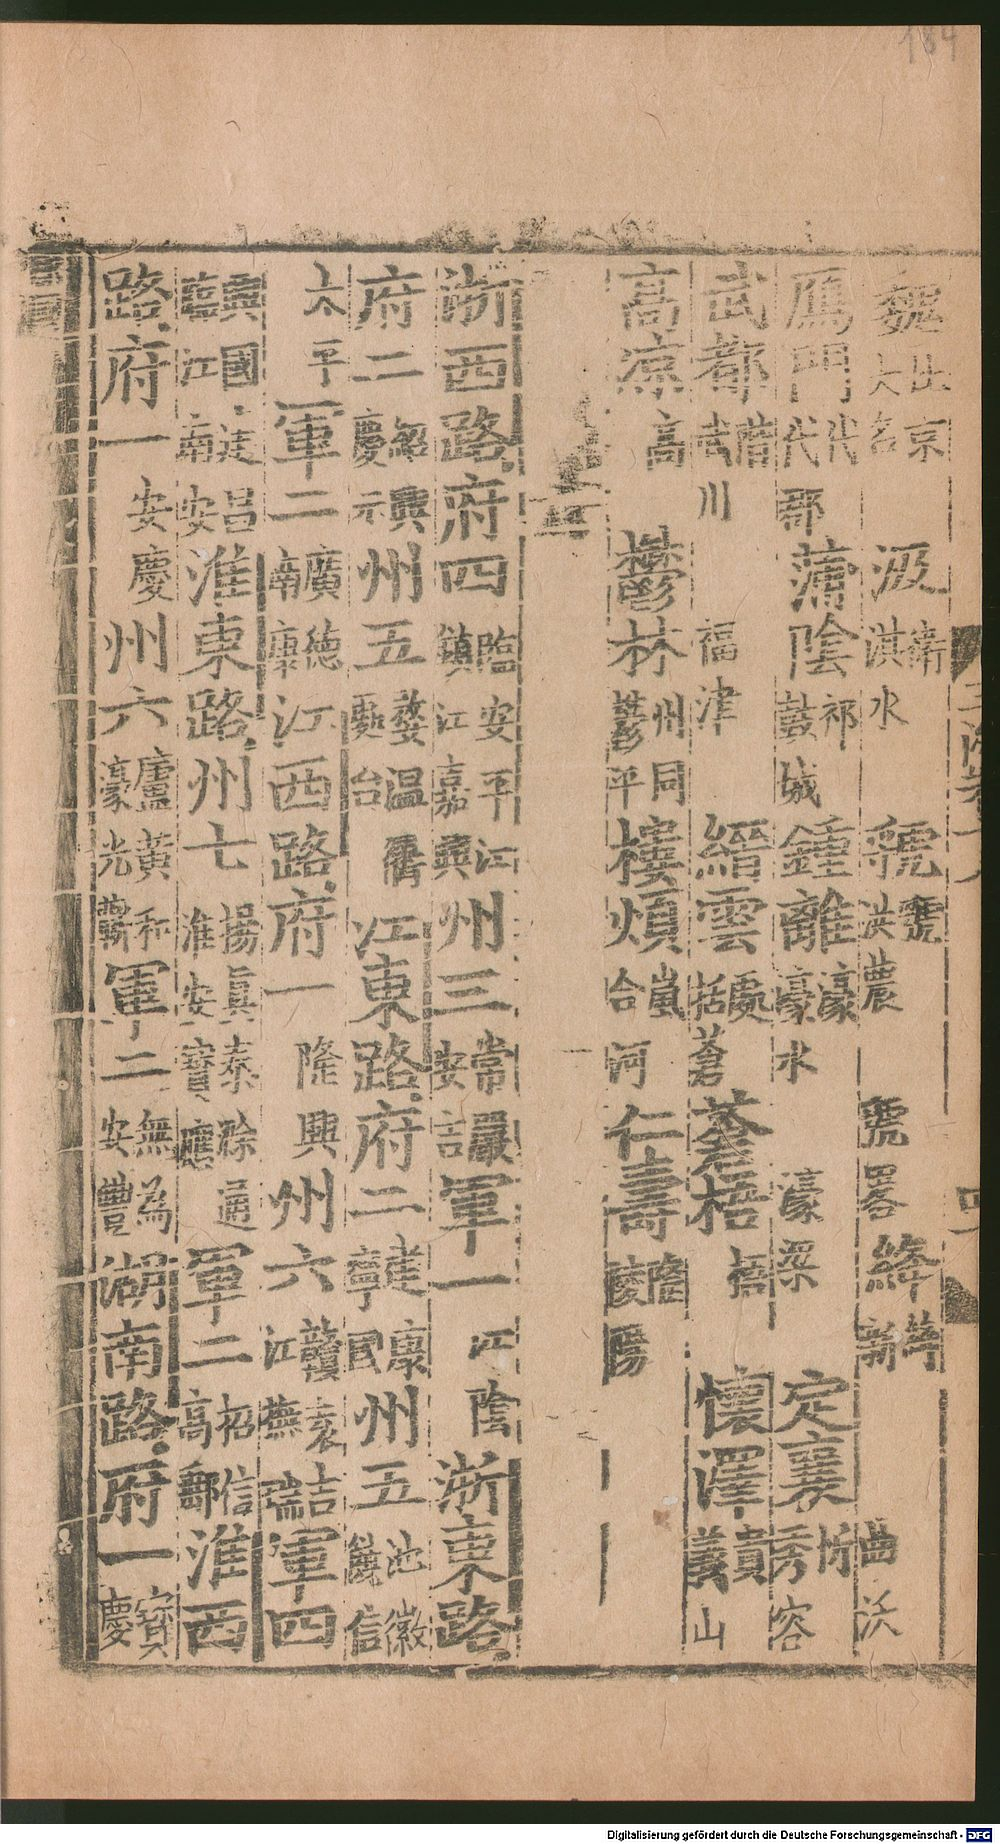 184
魏北京大名 汲衛淇水 虢虢洪農 虢畧 絳絳新 曲沃
鴈門代代郡 蒲陰祁鼓城 鍾離濠濠水 濠梁 定襄忻秀容
武都階武川 福津 縉雲處括蒼 蒼梧梧 懷澤貴義山
高凉高 鬱林州同鬱平 樓煩嵐合河 仁壽陵陽
浙西路府四臨安平江鎮江嘉興州三常嚴安吉軍一江陰浙東路
府二紹興慶元州五婺温衢處台江東路府二建康寧國州五池徽饒信
太平軍二廣德南康江西路府一隆興州六贛袁吉江撫瑞軍四
興國建昌臨江南安淮東路州七揚真泰徐通淮安寳應軍二招信高郵淮西
路府一安慶州六廬黃和濠光蘄軍二無為安豐湖南路府一寶慶
Digitalisierung gefördert durch die Deutsche Forschungsgemeinschaft - DFG